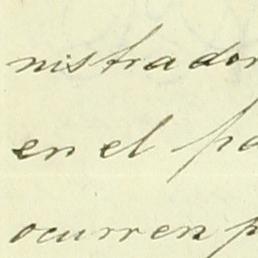 nistrador
en el pa
ocurren p